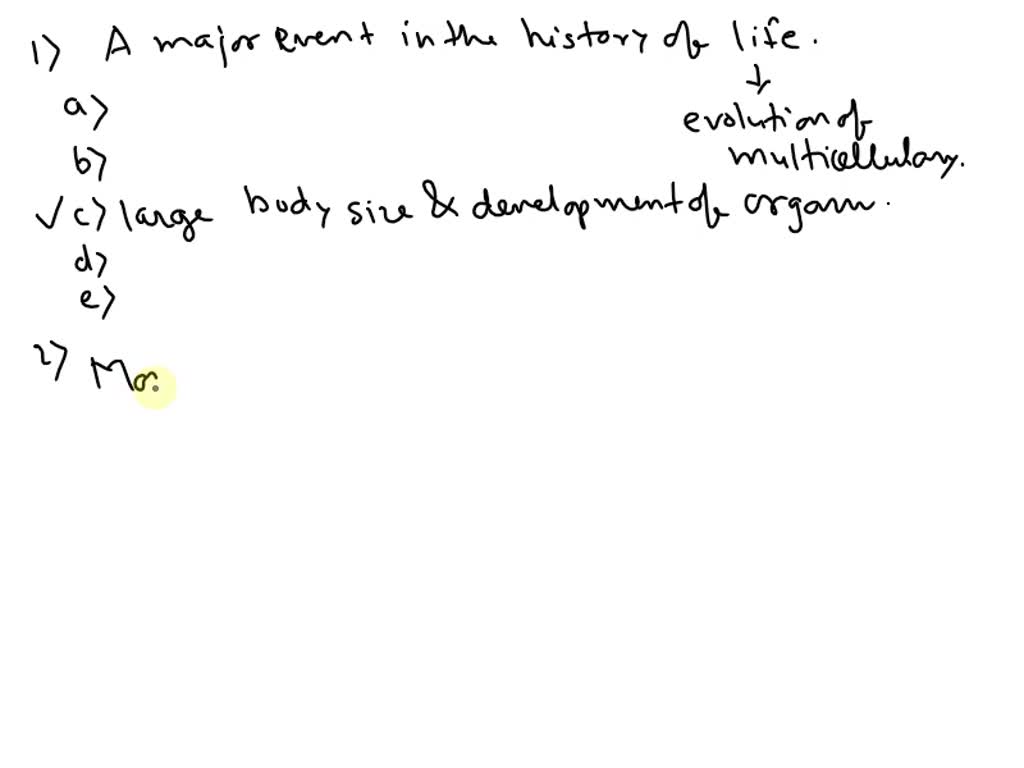 1) A major event in the history of life.
↓
evolution of
multicellulary.
a)
b)
✓ c) large body size & development of organ.
d)
e)
2) Mo